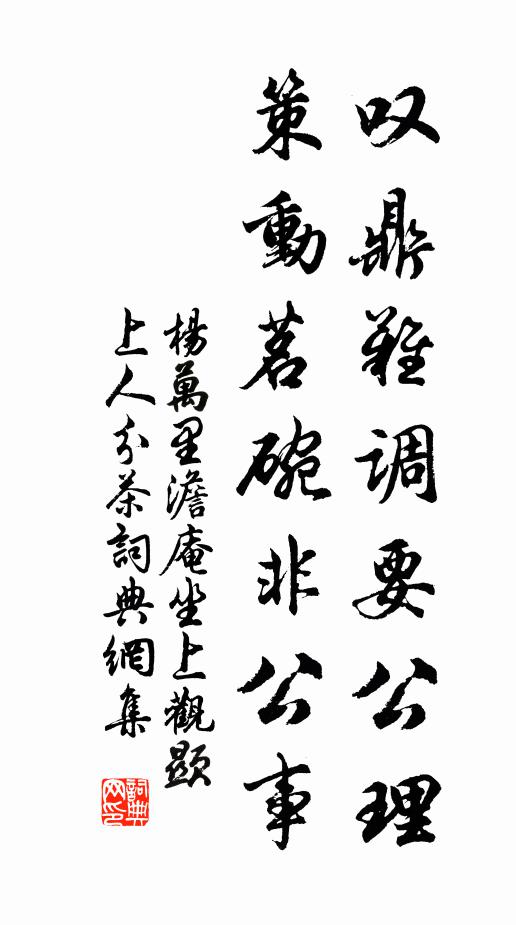 叹鼎難調要公理
策動茗碗非公事
楊萬里澹庵坐上觀顯
上人分茶詞典網集
詞典
网印